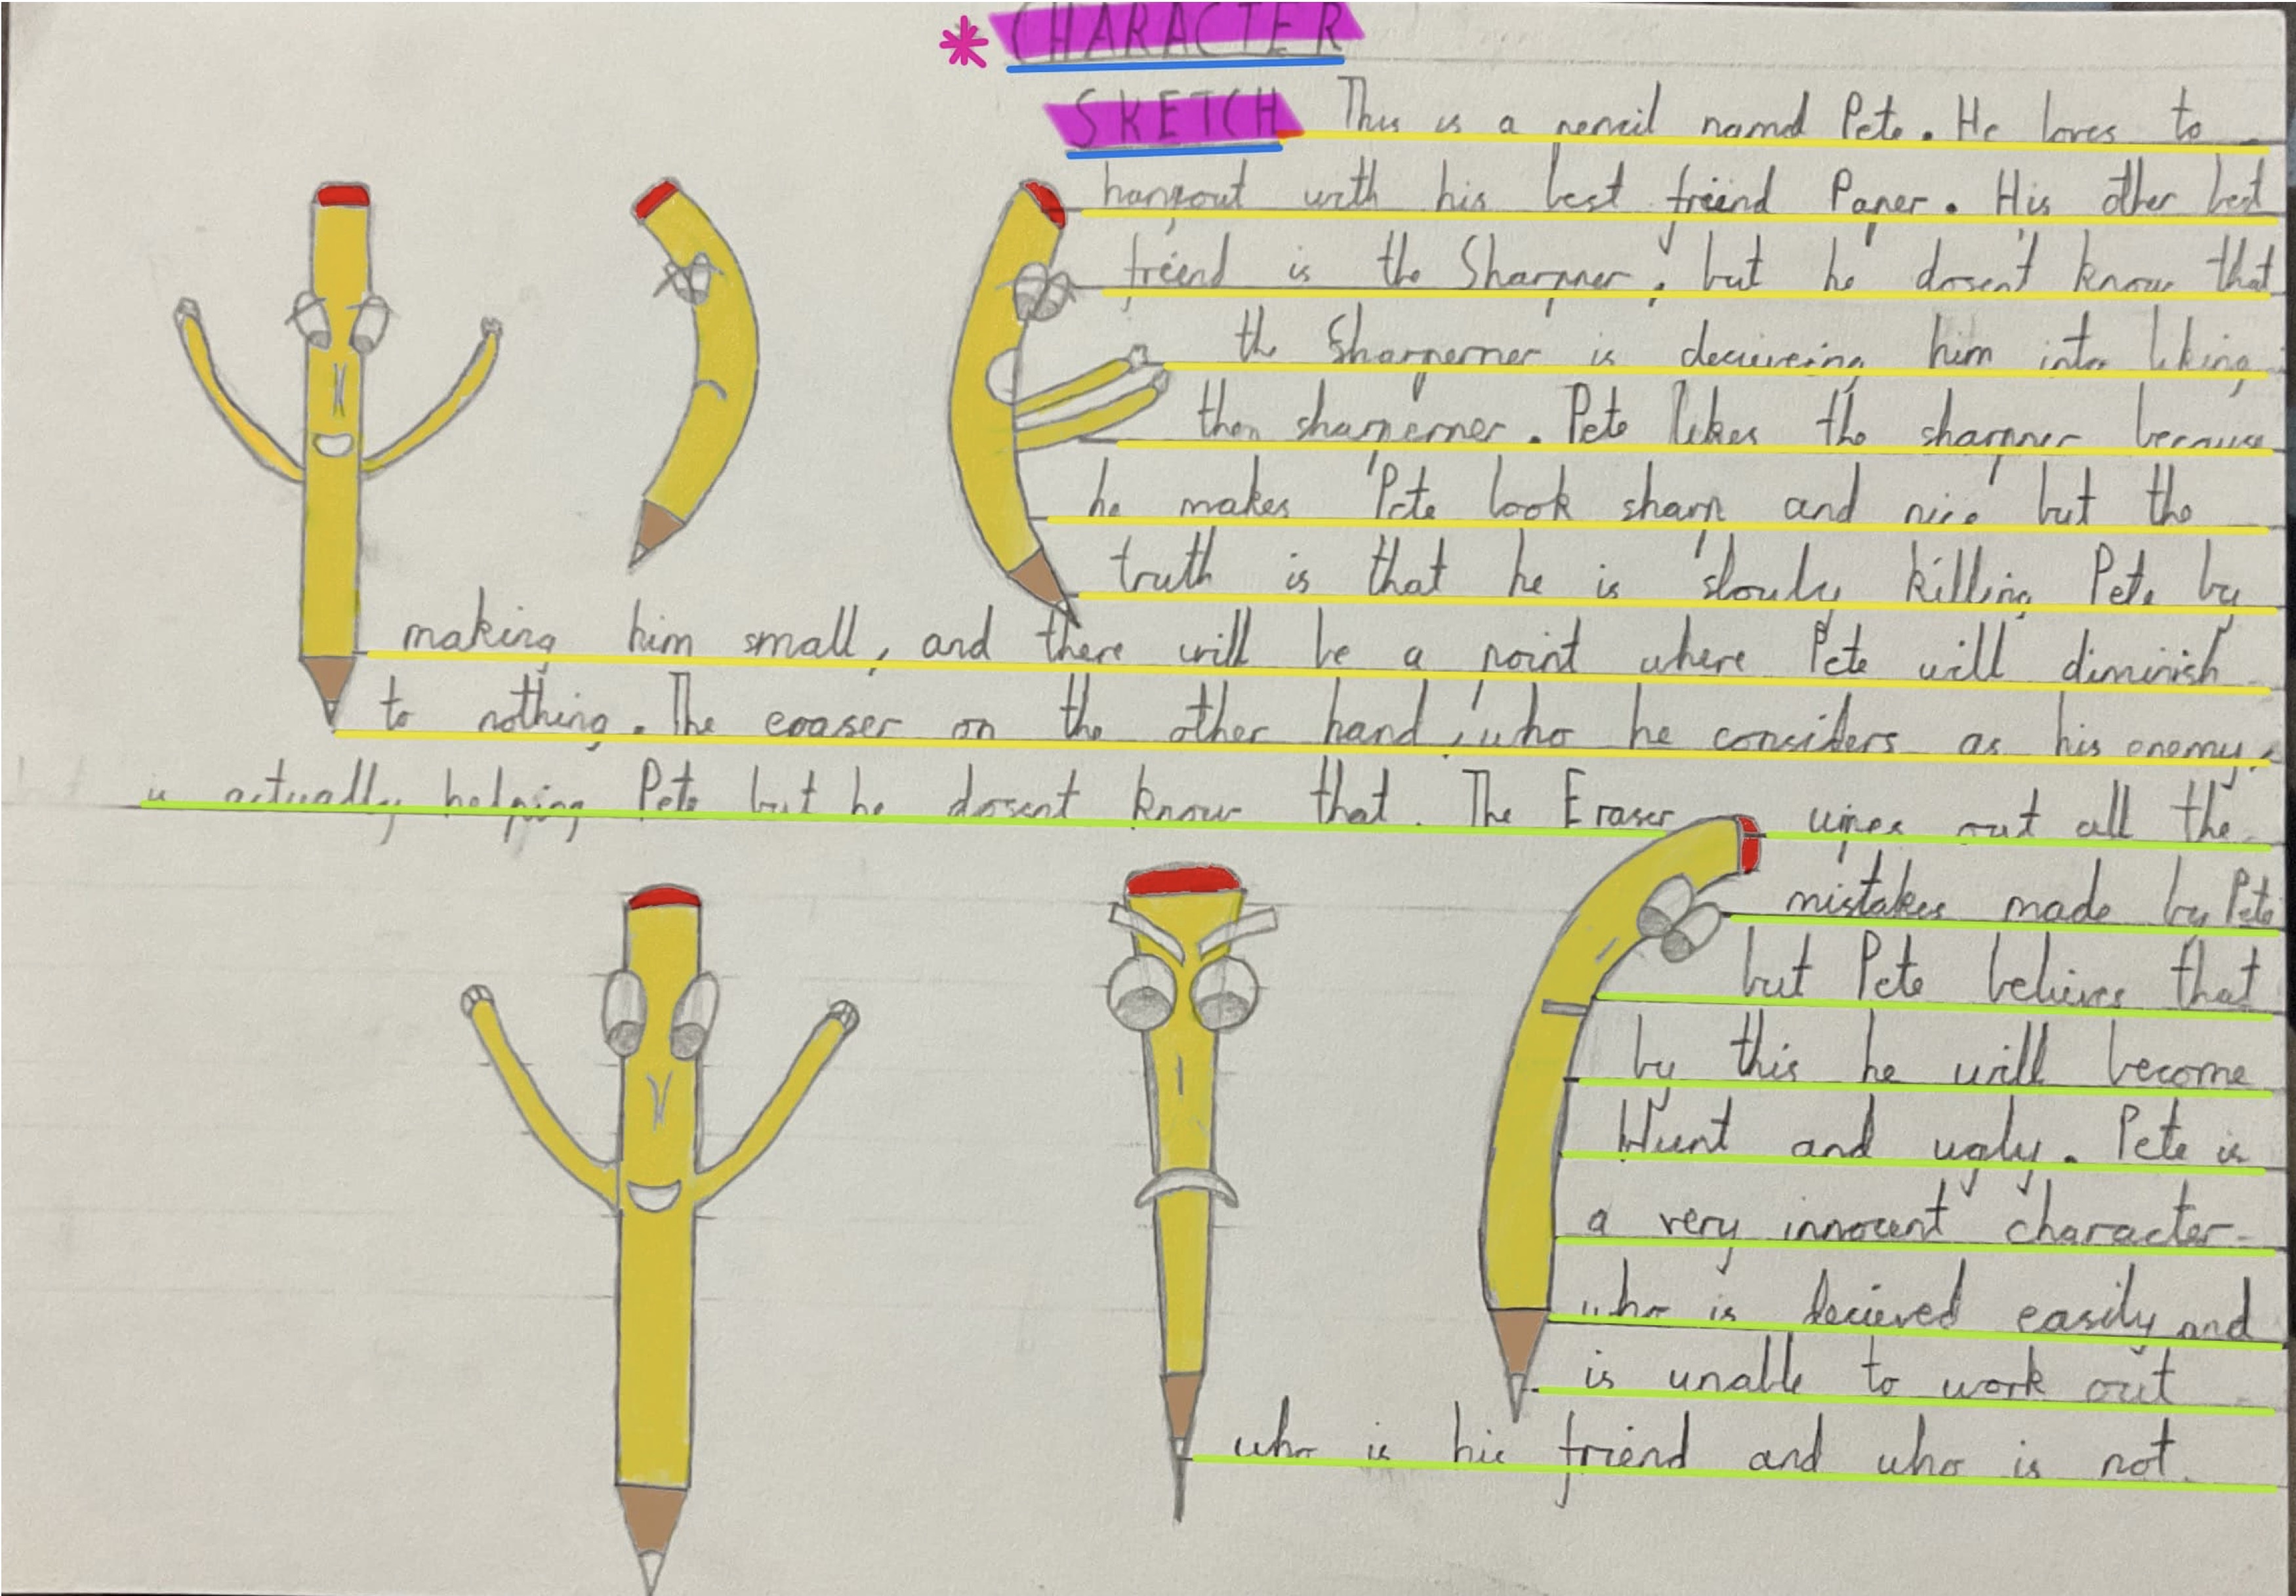 * CHARACTER
SKETCH This is a pencil namd Pete. He loves to
hangout with his best friend Paper. His other best
friend is the Sharpner, but he dosent know that
the Sharperner is decieveing him into liking
then sharperner. Pete likes the sharpner because
he makes Pete look sharp and nice but the
truth is that he is slouly killing Pete by
making him small, and there will be a point where Pete will diminish
to nothing. The eraser on the other hand, who he considers as his enemy,
is actually helping Pete but he dosent know that. The Eraser wipes out all the
mistakes made by Pete
but Pete belives that
by this he will become
blunt and ugly. Pete is
a very innocent character
who is decieved easily and
is unable to work out
who is his friend and who is not.